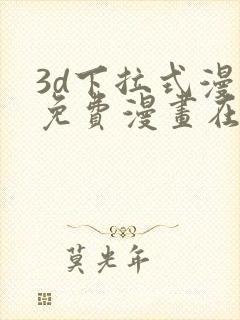 3d下拉式漫
免費漫畫在
莫光年